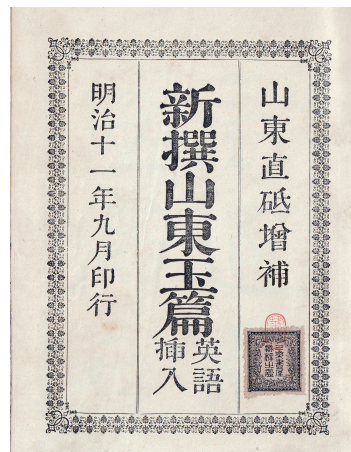 山東直砥增補
新撰山東玉篇
英語
挿入
明治十一年九月印行